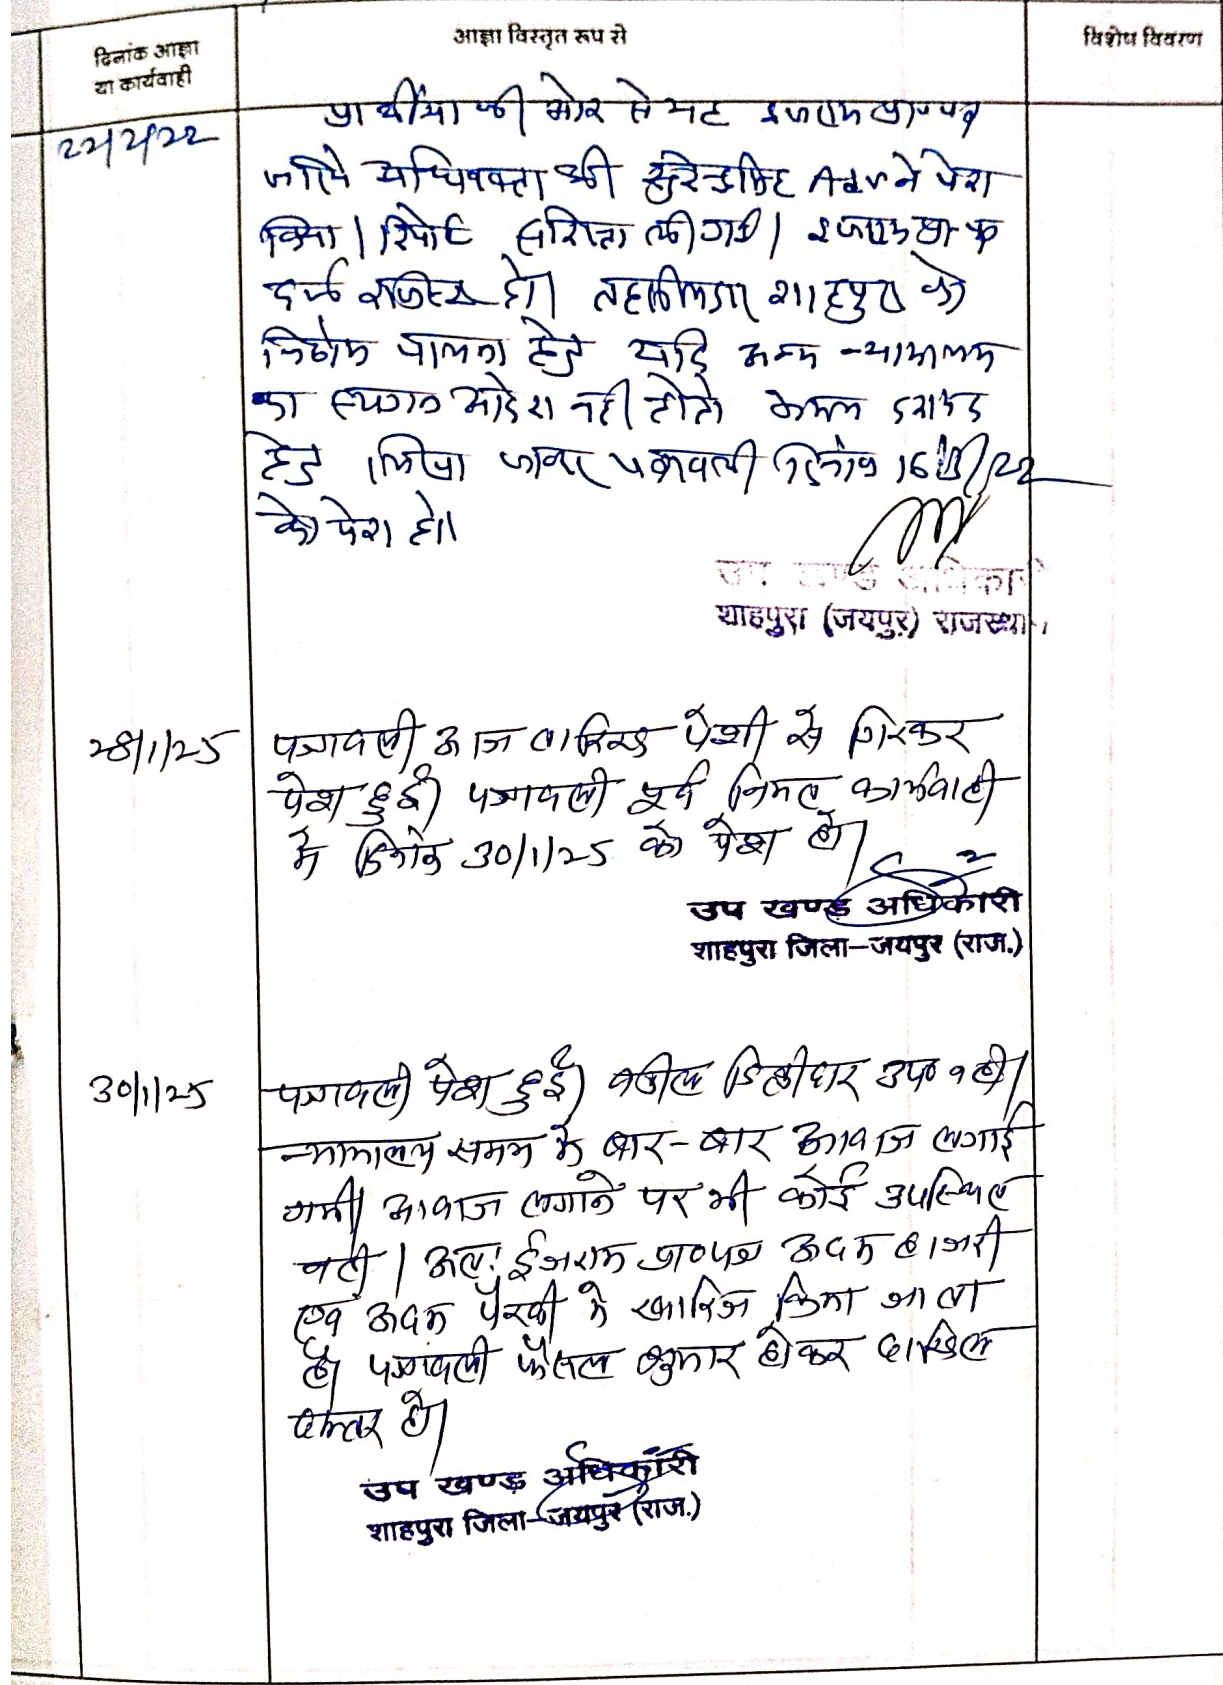 दिनांक आज्ञा
या कार्यवाही
आज्ञा विस्तृत रूप से
विशेष विवरण
प्रार्थीया की ओर से यह इजराय प्रा०पत्र
जरिये अधिवक्ता श्री सुरेन्द्रसिंह Adv ने पेश
किया। रिपोर्ट सरिश्ता ली गयी। इजराय प्रा०पत्र
दर्ज रजिस्टर हो। तहसीलदार शाहपुरा को
निर्णय पालना हेतु यदि अन्य न्यायालय
का स्थगन आदेश नहीं हो तो अमल दरामद
हेतु लिखा जावे। पत्रावली दिनांक 22
को पेश हो।
उप खण्ड अधिकारी
शाहपुरा (जयपुर) राजस्थान
28/1/25
पत्रावली आज तारिख पेशी से गिरकर
पेश हुई। पत्रावली पूर्व नियत कार्यवाही
में दिनांक 30/1/25 को पेश हो।
उप खण्ड अधिकारी
शाहपुरा जिला-जयपुर (राज.)
30/1/25
पत्रावली पेश हुई। वकील डिक्रीदार उप० नही।
न्यायालय समय में बार-बार आवाज लगाई
गयी। आवाज लगाने पर भी कोई उपस्थित
नही। अतः ईजराय प्रा०पत्र अदम हाजरी
एवं अदम पैरवी में खारिज किया जाता
है। पत्रावली फैसल शुमार होकर दाखिल
दफ्तर हो।
उप खण्ड अधिकारी
शाहपुरा जिला-जयपुर (राज.)